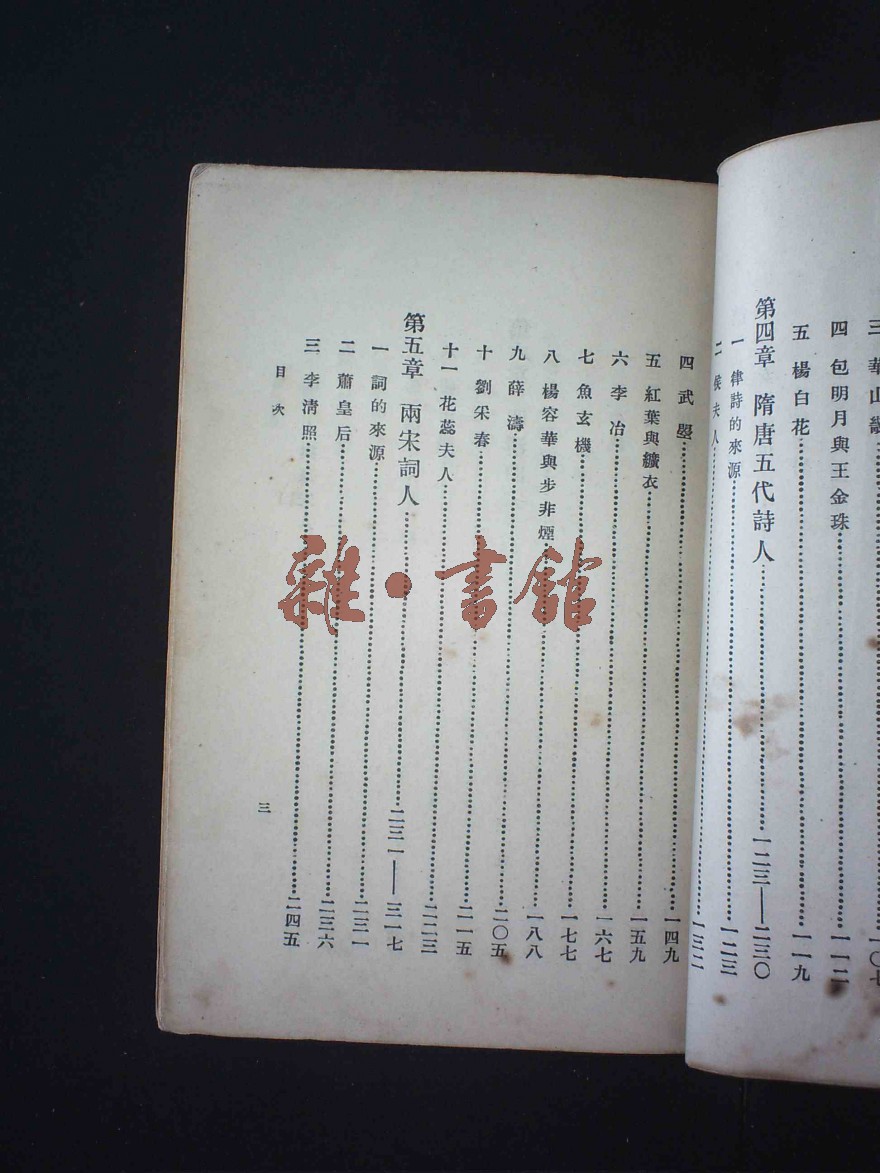 三 華山畿……一〇七
四 包明月與王金珠……一一二
五 楊白花……一一九
第四章 隋唐五代詩人……一二三——二三〇
一 律詩的來源……一二三
二 侯夫人……一三二
四 武曌……一四九
五 紅葉與纊衣……一五九
六 李冶……一六七
七 魚玄機……一七七
八 楊容華與步非煙……一八八
九 薛濤……二〇五
十 劉采春……二一五
十一 花蕊夫人……二二三
第五章 兩宋詞人……二三一——三一七
一 詞的來源……二三一
二 蕭皇后……二三六
三 李清照……二四五
目次
三
雜·書館